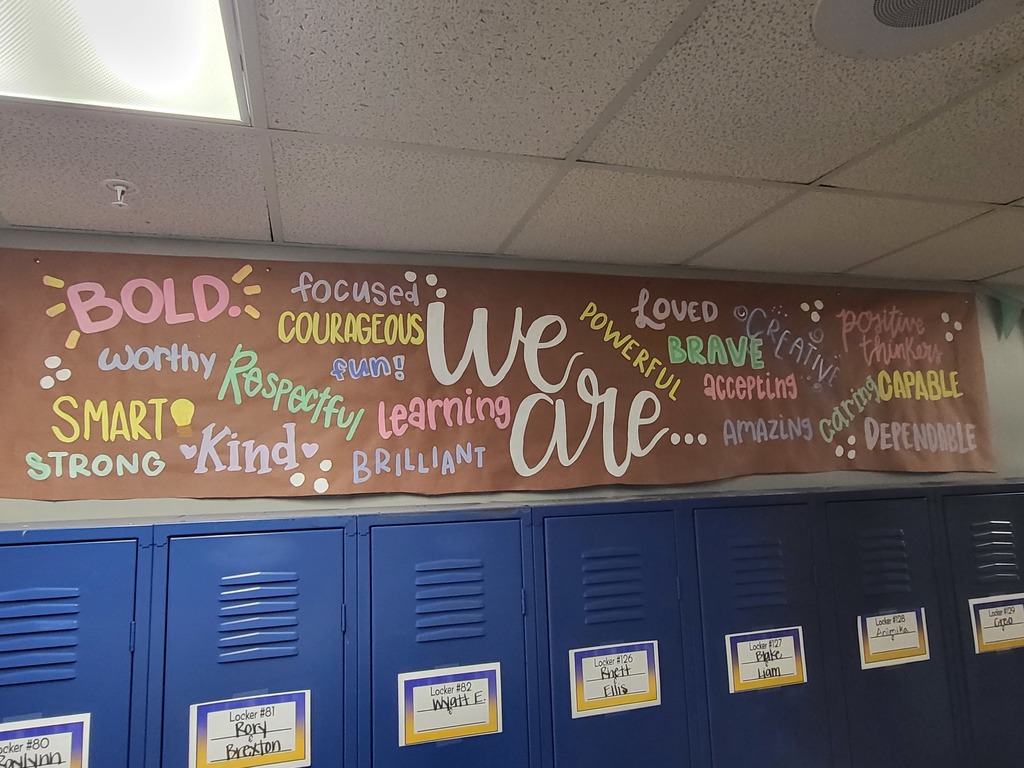 BOLD.
focused
COURAGEOUS
worthy
Respectful
fun!
SMART
learning
STRONG
Kind
BRILLIANT
we
are...
POWERFUL
LOVED
BRAVE
CREATIVE
positive
thinkers
accepting
caring
CAPABLE
AMAZING
DEPENDABLE
Locker #80
Raylynn
Locker #81
Rory
Brexton
Locker #82
Wyatt E.
Locker #126
Rhett
Ellis
Locker #127
Blake
Liam
Locker #128
Animika
Locker #129